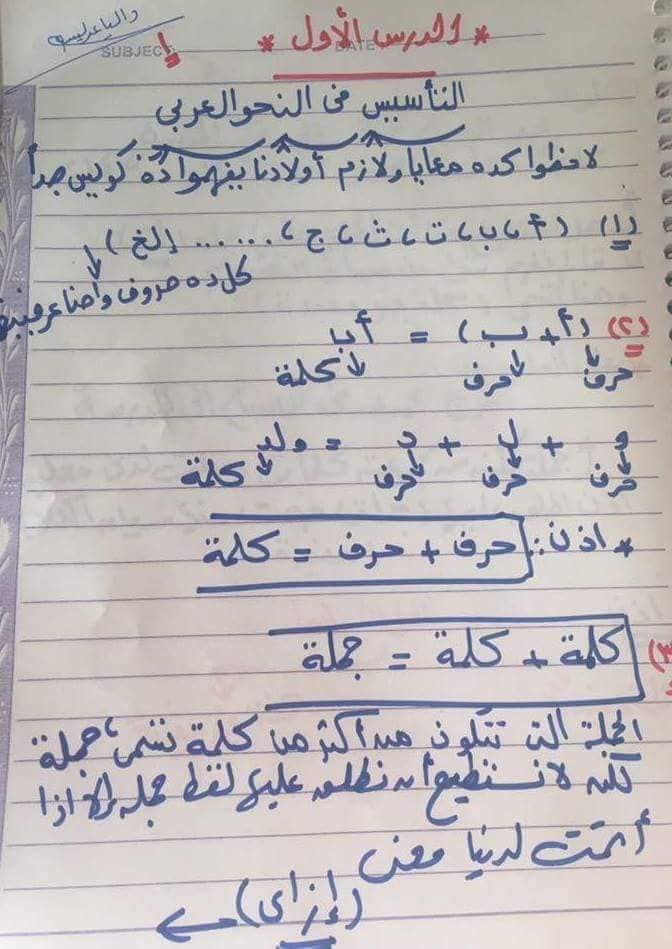 داليا عدلي
SUBJECT:
DATE
* الدرس الأول *
التأسيس فى النحو العربي
لاحظوا كده معايا ولازم أولادنا يفهموا دة كويس جداً
(١) (أ، ب، ت، ث، ج، ...... إلخ)
كل ده حروف وأحنا عرفينها
(٢) (أ + ب) = أب
حرف حرف كلمة
و + ل + د = ولد
حرف حرف حرف كلمة
* اذن :: حرف + حرف = كلمة
(٣) كلمة + كلمة = جملة
الجملة التى تتكون من أكثر من كلمة تسمى، جملة
لكن لا نستطيع أن نطلق عليها لفظ جملة إلا اذا
أتمت لدينا معنى
(إزاى)